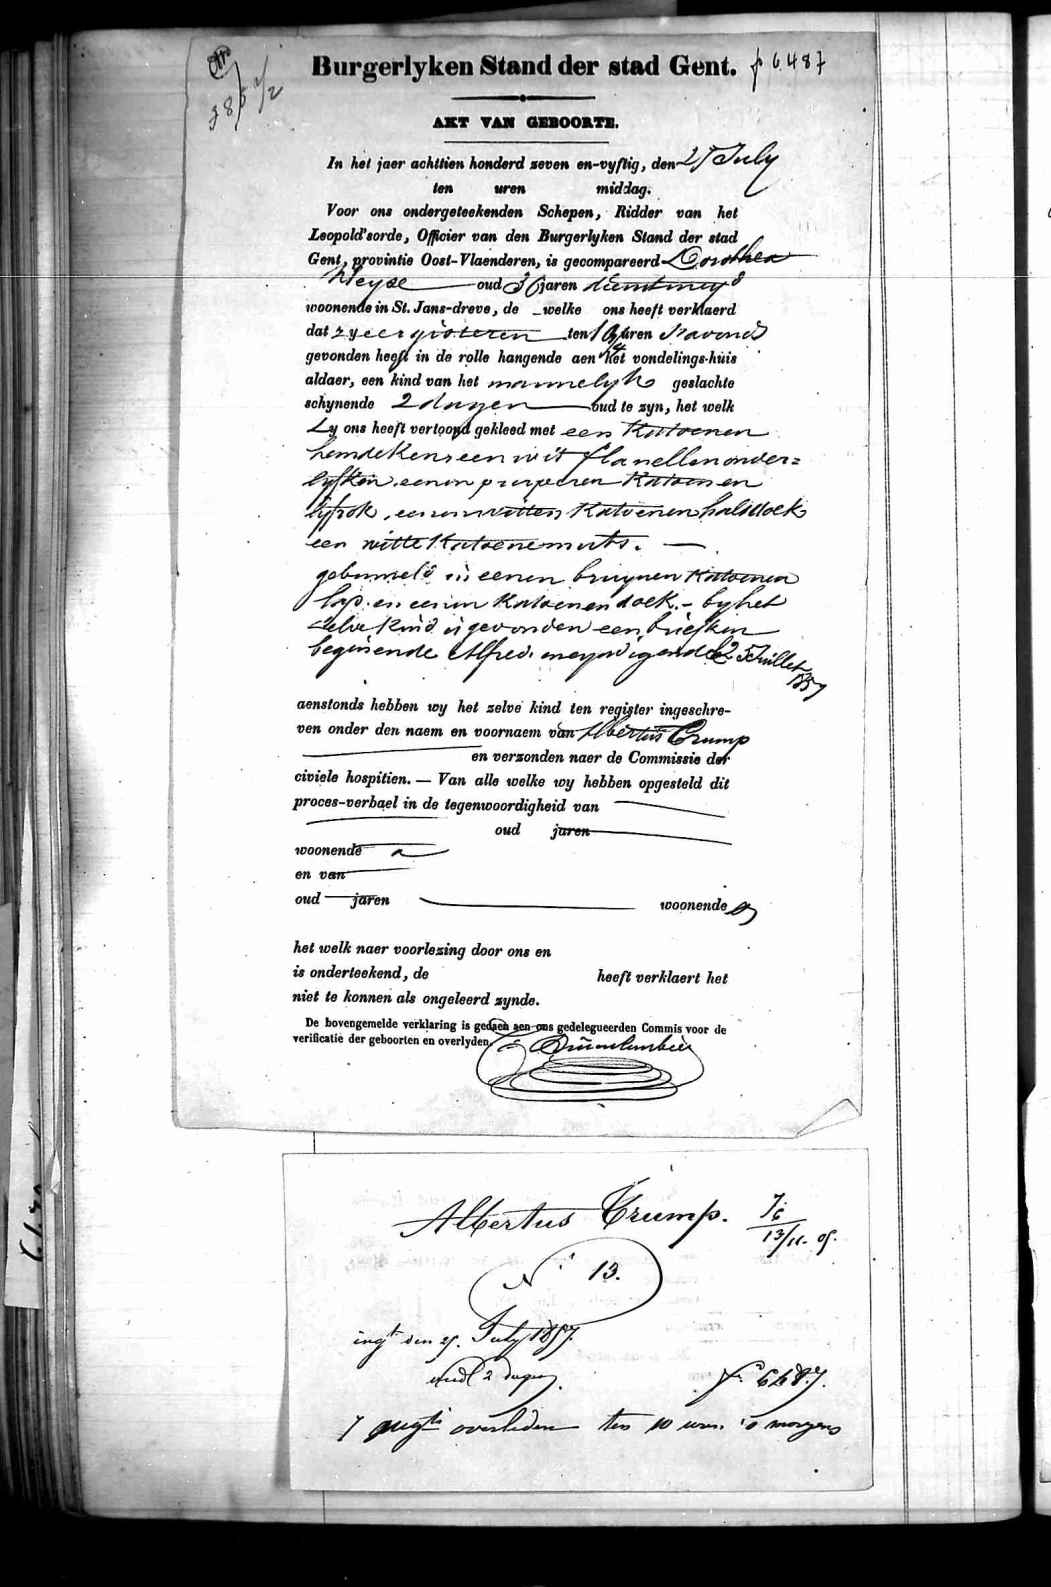 Burgerlyken Stand der stad Gent. f 6487
AKT VAN GEBOORTE.
In het jaer achttien honderd zeven en-vyftig, den 27 July
ten uren middag.
Voor ons ondergeteekenden Schepen, Ridder van het
Leopold'sorde, Officier van den Burgerlyken Stand der stad
Gent, provintie Oost-Vlaenderen, is gecompareerd Dorothea
oud 36 jaren dienstmeyd
woonende in St. Jans-dreve, de welke ons heeft verklaerd
dat zy eergisteren ten uren s'avonds
gevonden heeft in de rolle hangende aen het vondelings-huis
aldaer, een kind van het mannelyk geslachte
schynende 2 dagen oud te zyn, het welk
Zy ons heeft vertoond gekleed met een Katoenen
hemdeken een wit flanellen onder=
lyfken eenen purperen Katoenen
lyfrok, eenen witten Katoenen halsdoek
een witte Katoene muts. —
gebunseld in eenen bruynen Katoenen
lap en eenen Katoenen doek. - by het
zelve Kind is gevonden een briefken
beginende Alfred eneyndigende 25 Juillet
1857
aenstonds hebben wy het zelve kind ten register ingeschre-
ven onder den naem en voornaem van Albertus Crump
en verzonden naer de Commissie der
civiele hospitien. — Van alle welke wy hebben opgesteld dit
proces-verbael in de tegenwoordigheid van
oud jaren
woonende a
en van
oud jaren woonende
het welk naer voorlezing door ons en
is onderteekend, de heeft verklaert het
niet te konnen als ongeleerd zynde.
De bovengemelde verklaring is gedaen aen ons gedelegueerden Commis voor de
verificatie der geboorten en overlyden.
Albertus Crump.
N° 13.
ingt den 27. July 1857.
oud 2 dagen
f° 6487.
7 augti overleden ten 10 uren 's morgens